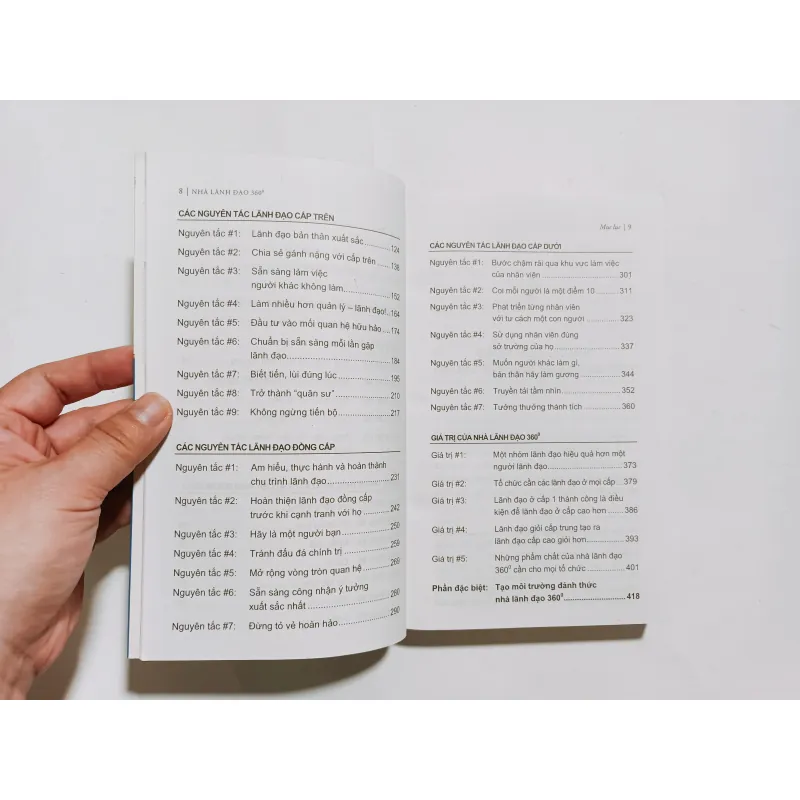 8 | NHÀ LÃNH ĐẠO 360⁰
CÁC NGUYÊN TẮC LÃNH ĐẠO CẤP TRÊN
Nguyên tắc #1: Lãnh đạo bản thân xuất sắc ........... 124
Nguyên tắc #2: Chia sẻ gánh nặng với cấp trên ..... 138
Nguyên tắc #3: Sẵn sàng làm việc
người khác không làm ................ 152
Nguyên tắc #4: Làm nhiều hơn quản lý – lãnh đạo! .. 164
Nguyên tắc #5: Đầu tư vào mối quan hệ hữu hảo .... 174
Nguyên tắc #6: Chuẩn bị sẵn sàng mỗi lần gặp
lãnh đạo ................................ 184
Nguyên tắc #7: Biết tiến, lùi đúng lúc ................ 195
Nguyên tắc #8: Trở thành “quân sư” ................. 210
Nguyên tắc #9: Không ngừng tiến bộ ................. 217
CÁC NGUYÊN TẮC LÃNH ĐẠO ĐỒNG CẤP
Nguyên tắc #1: Am hiểu, thực hành và hoàn thành
chu trình lãnh đạo ..................... 231
Nguyên tắc #2: Hoàn thiện lãnh đạo đồng cấp
trước khi cạnh tranh với họ ......... 242
Nguyên tắc #3: Hãy là một người bạn ................ 250
Nguyên tắc #4: Tránh đấu đá chính trị ............... 259
Nguyên tắc #5: Mở rộng vòng tròn quan hệ .......... 269
Nguyên tắc #6: Sẵn sàng công nhận ý tưởng
xuất sắc nhất ........................... 280
Nguyên tắc #7: Đừng tỏ vẻ hoàn hảo ................. 290
Mục lục | 9
CÁC NGUYÊN TẮC LÃNH ĐẠO CẤP DƯỚI
Nguyên tắc #1: Bước chậm rãi qua khu vực làm việc
của nhân viên ........................... 301
Nguyên tắc #2: Coi mỗi người là một điểm 10 ........ 311
Nguyên tắc #3: Phát triển từng nhân viên
với tư cách một con người ............ 323
Nguyên tắc #4: Sử dụng nhân viên đúng
sở trường của họ ....................... 337
Nguyên tắc #5: Muốn người khác làm gì,
bản thân hãy làm gương ............... 344
Nguyên tắc #6: Truyền tải tầm nhìn ................... 352
Nguyên tắc #7: Tưởng thưởng thành tích ............. 360
GIÁ TRỊ CỦA NHÀ LÃNH ĐẠO 360⁰
Giá trị #1: Một nhóm lãnh đạo hiệu quả hơn một
người lãnh đạo .......................... 373
Giá trị #2: Tổ chức cần các lãnh đạo ở mọi cấp .. 379
Giá trị #3: Lãnh đạo ở cấp 1 thành công là điều
kiện để lãnh đạo ở cấp cao hơn ...... 386
Giá trị #4: Lãnh đạo giỏi cấp trung tạo ra
lãnh đạo cấp cao giỏi hơn ............. 393
Giá trị #5: Những phẩm chất của nhà lãnh đạo
360⁰ cần cho mọi tổ chức ............. 401
Phần đặc biệt: Tạo môi trường đánh thức
nhà lãnh đạo 360⁰ ...................... 418